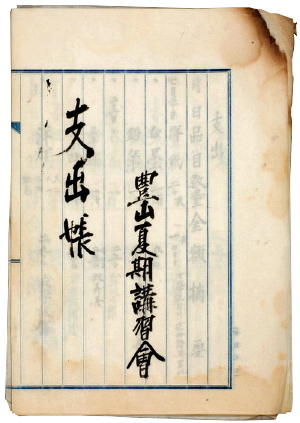 支出帳
豊山夏期講習會